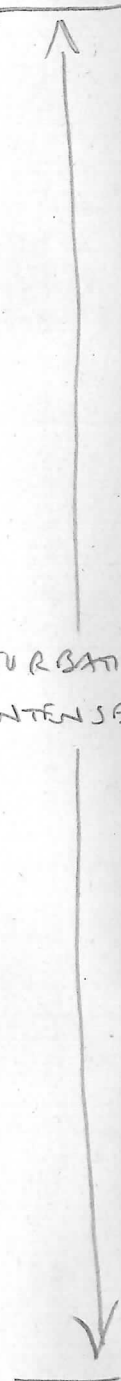 URBATI
NTENSE